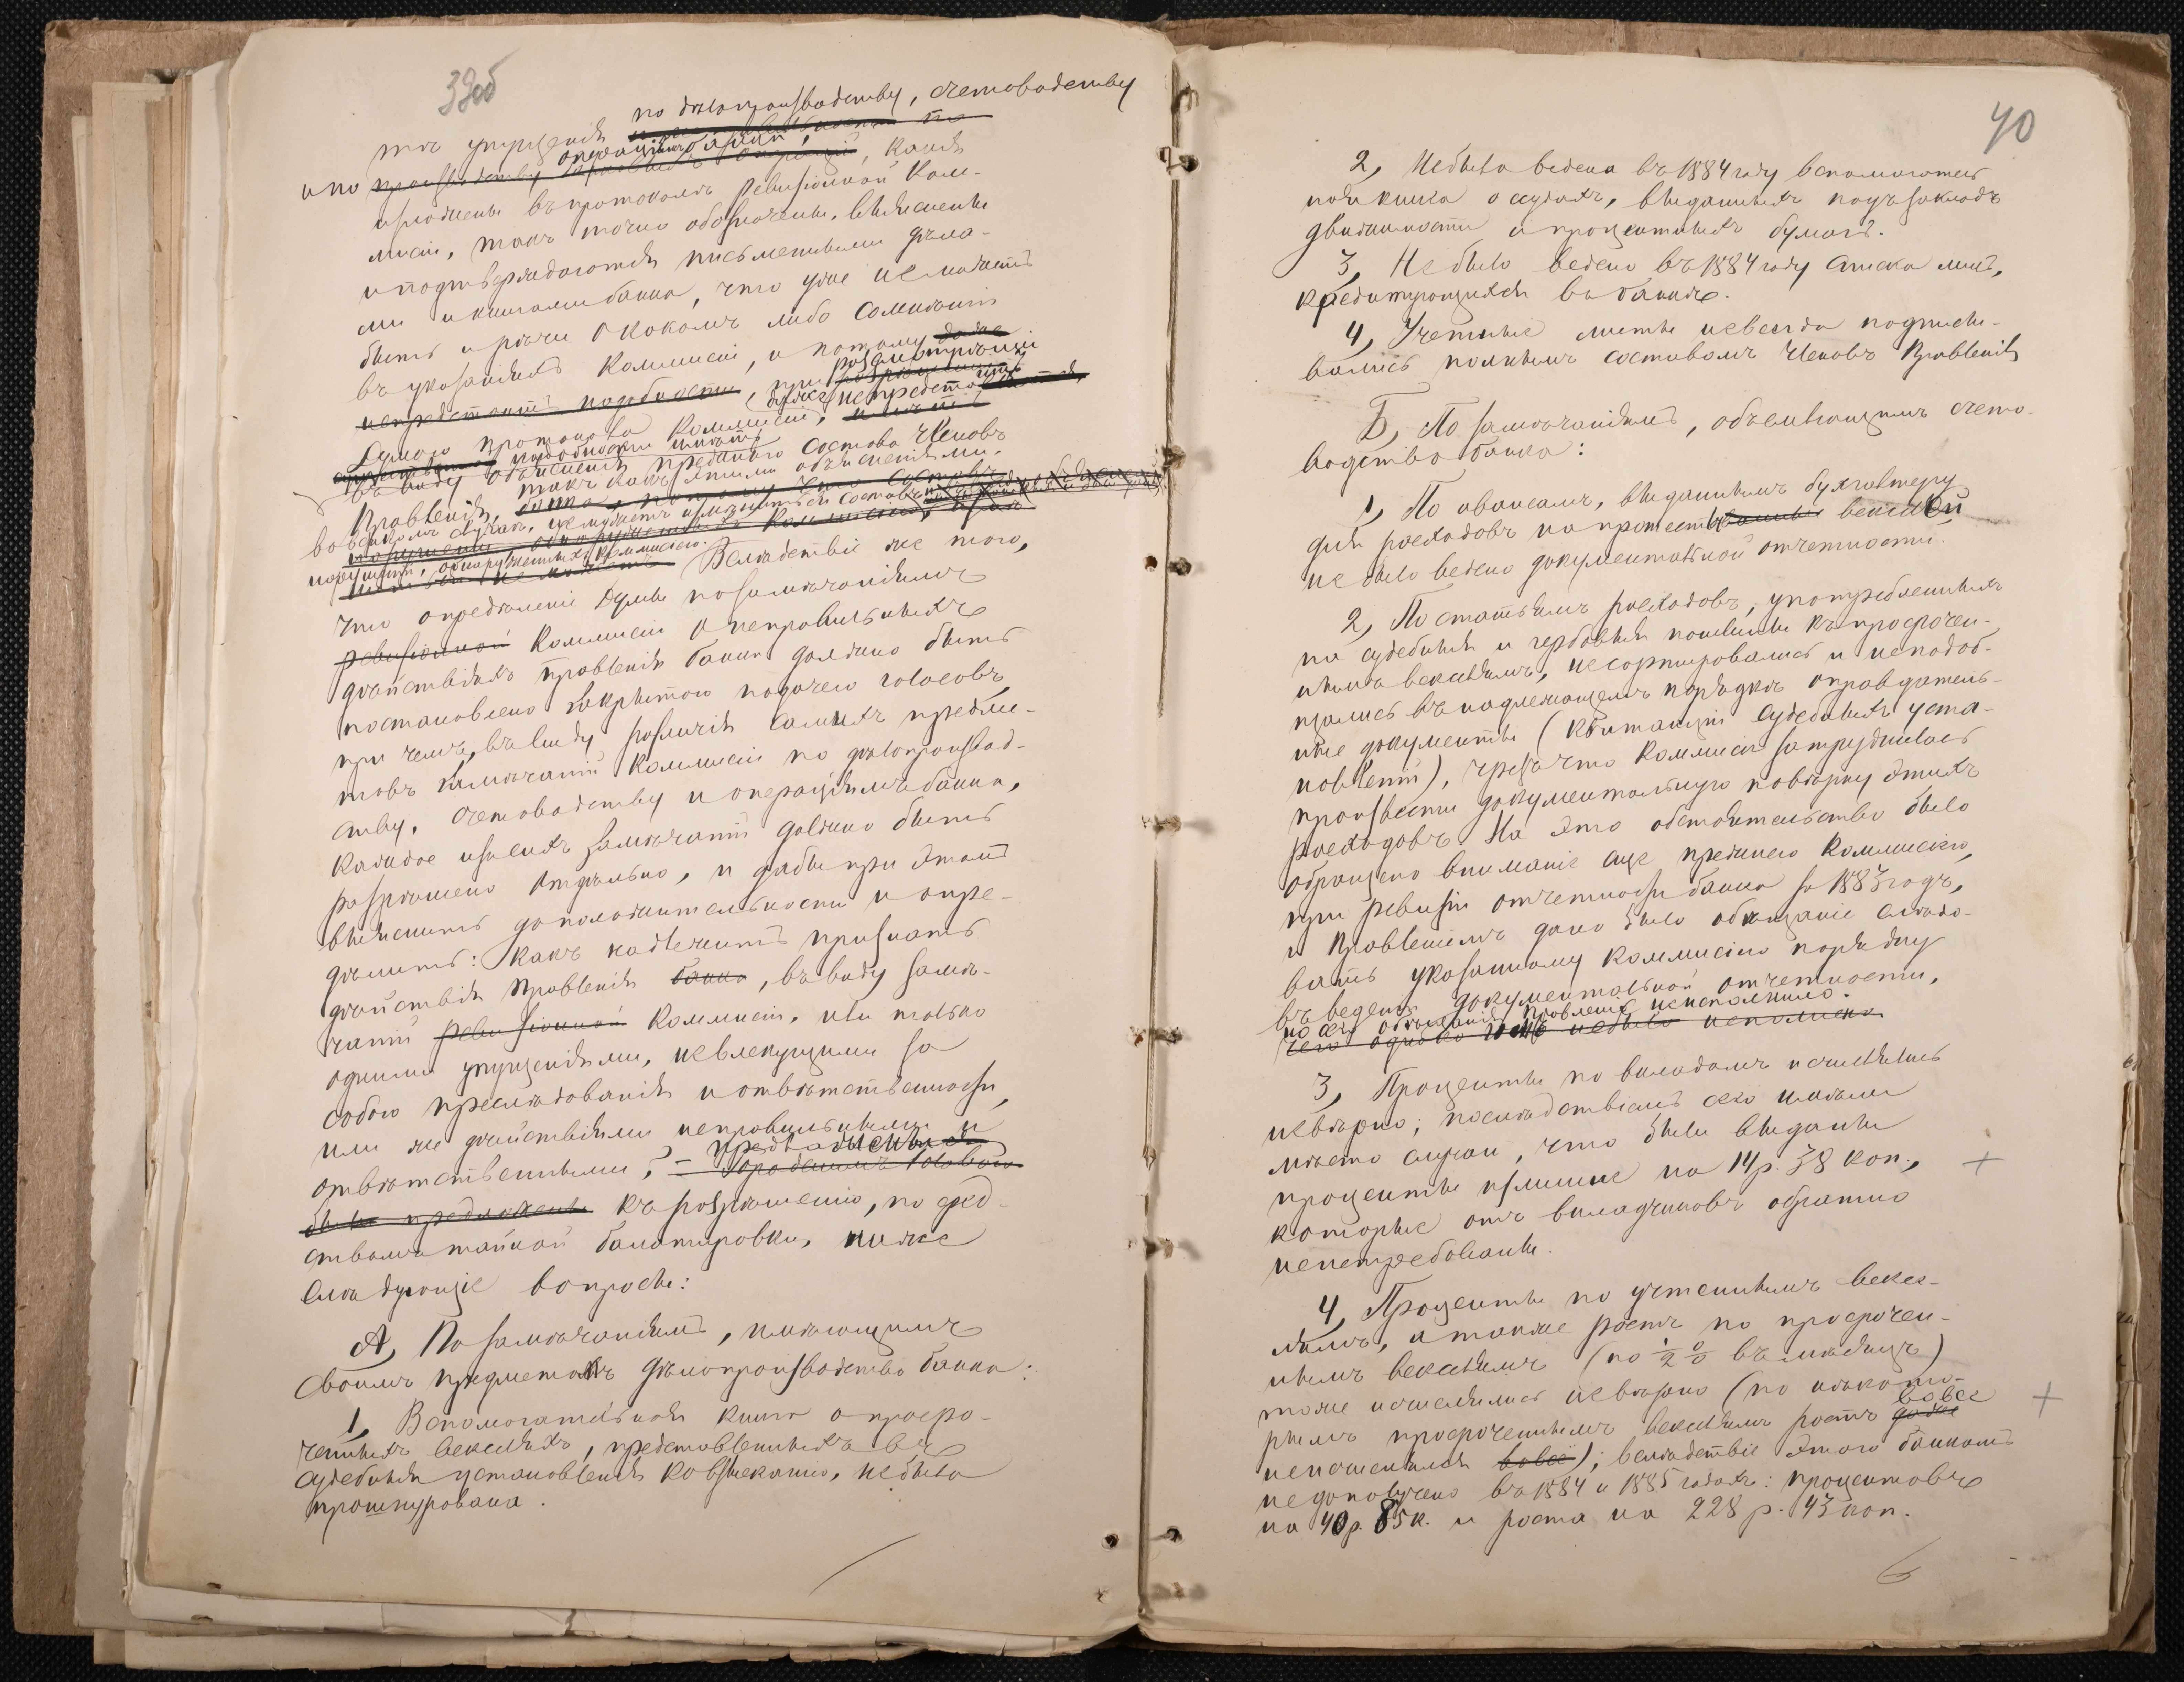 39об
по дѣлопроизводству, счетоводству
тѣ упущенія
и по производству операціямъ банка, какія
изложены въ протоколѣ ревизіонной Ком-
мисіи, такъ точно обозначены, выяснены
и подтверждаются письменными дѣла-
ми и книгами банка, что уже не можетъ
быть и рѣчи о какомъ либо сомнѣніи
въ указаніяхъ Коммисіи, и потому даже
непредстоитъ надобности, при разсмотрѣніи
Думою протокола Коммисіи, даже непредстоитъ
надобности имѣть
въ виду объясненія прежняго состава Членовъ
Правленія, такъ какъ этими объясненіями,
во всякомъ случаѣ, не можетъ измѣниться составъ
нарушеній, обнаруженныхъ Коммисіею. Вслѣдствіе же того,
что опредѣленіе Думы по замѣчаніямъ
ревизіонной Коммисіи о неправильныхъ
дѣйствіяхъ Правленія банка должно быть
постановлено закрытою подачею голосовъ,
при чемъ, въ виду различія самыхъ предме-
товъ замѣчаній Коммисіи по дѣлопроизвод-
ству, счетоводству и операціямъ банка,
каждое изъ сихъ замѣчаній должно быть
разрѣшено отдѣльно, и дабы при этомъ
выяснить дополнительности и опре-
дѣлить: какъ надлежитъ признать
дѣйствія Правленія банка, въ виду замѣ-
чаній ревизіонной Коммисіи, или только
одними упущеніями, невлекущими за
собою преслѣдованія и отвѣтственности,
или же дѣйствіями неправильными и
отвѣтственными, – предложены
Городскимъ Головою
были предложены къ разрѣшенію, посред-
ствомъ тайной балотировки, ниже
слѣдующіе вопросы:
А, По замѣчаніямъ, имѣющимъ
своимъ предметомъ дѣлопроизводство банка:
1, Вспомогательная книга о просро-
ченныхъ векселяхъ, представленныхъ въ
судебныя установленія ко взысканію, небыла
прошнурована.
40
2, Небыла ведена въ 1884 году вспомогатель
ная книга о ссудахъ, выданныхъ подъ закладъ
движимости и процентныхъ бумагъ.
3, Небыло ведено въ 1884 году списка лицъ,
кредитующихся въ банкѣ.
4, Учетные листы невсегда подписы-
вались полнымъ составомъ Членовъ Правленія
Б, По замѣчаніямъ, объемлющимъ счето-
водство банка:
1, По авансамъ, выданнымъ бухгалтеру
для расходовъ на протесты векселей
не было ведено документальной отчетности.
2, По статьямъ расходовъ, употребленныхъ
на судебныя и гербовыя пошлины къ просрочен-
нымъ векселямъ, несортировались и неподоб-
щались въ надлежащемъ порядкѣ оправдатель-
ные документы (квитанціи судебныхъ уста-
новленій), чрезъ что Коммисія затруднилась
произвести документальную повѣрку этихъ
расходовъ. На это обстоятельство было
обращено вниманіе еще прежнею Коммисіею,
при ревизіи отчетности банка за 1883 годъ,
и Правленіемъ дано было обѣщаніе слѣдо-
вать указанному Коммисіею порядку
въ веденіи документальной отчетности,
но сего обѣщанія Правленіе неисполнило.
чего однако же небыло исполнено
3, Проценты по вкладамъ исчислялись
невѣрно; послѣдствіемъ сего имѣли
мѣсто случаи, что были выданы
проценты излишне на 14 р. 38 коп.,
которые отъ вкладчиковъ обратно
непотребованы.
4, Проценты по учтеннымъ вексе-
лямъ, а также ростъ по просрочен-
нымъ векселямъ (по 1/2 % въ мѣсяцъ)
тоже исчислялись невѣрно (по нѣкото-
рымъ просроченнымъ векселямъ ростъ даже вовсе
неисчислялся вовсе); вслѣдствіе этого банкомъ
недополучено въ 1884 и 1885 годахъ: процентовъ
на 40 р. 85 к. и роста на 228 р. 43 коп.